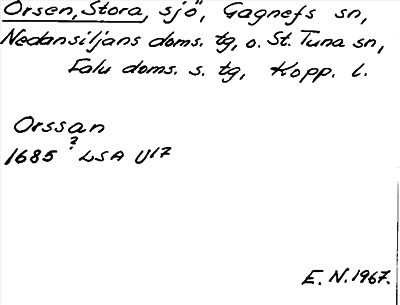 Orsen, Stora, sjö, Gagnefs sn,
Nedansiljans doms. tg, o. St. Tuna sn,
Falu doms. s. tg, Kopp. l.
Orssan
1685 ? LSA U17
E. N. 1967.